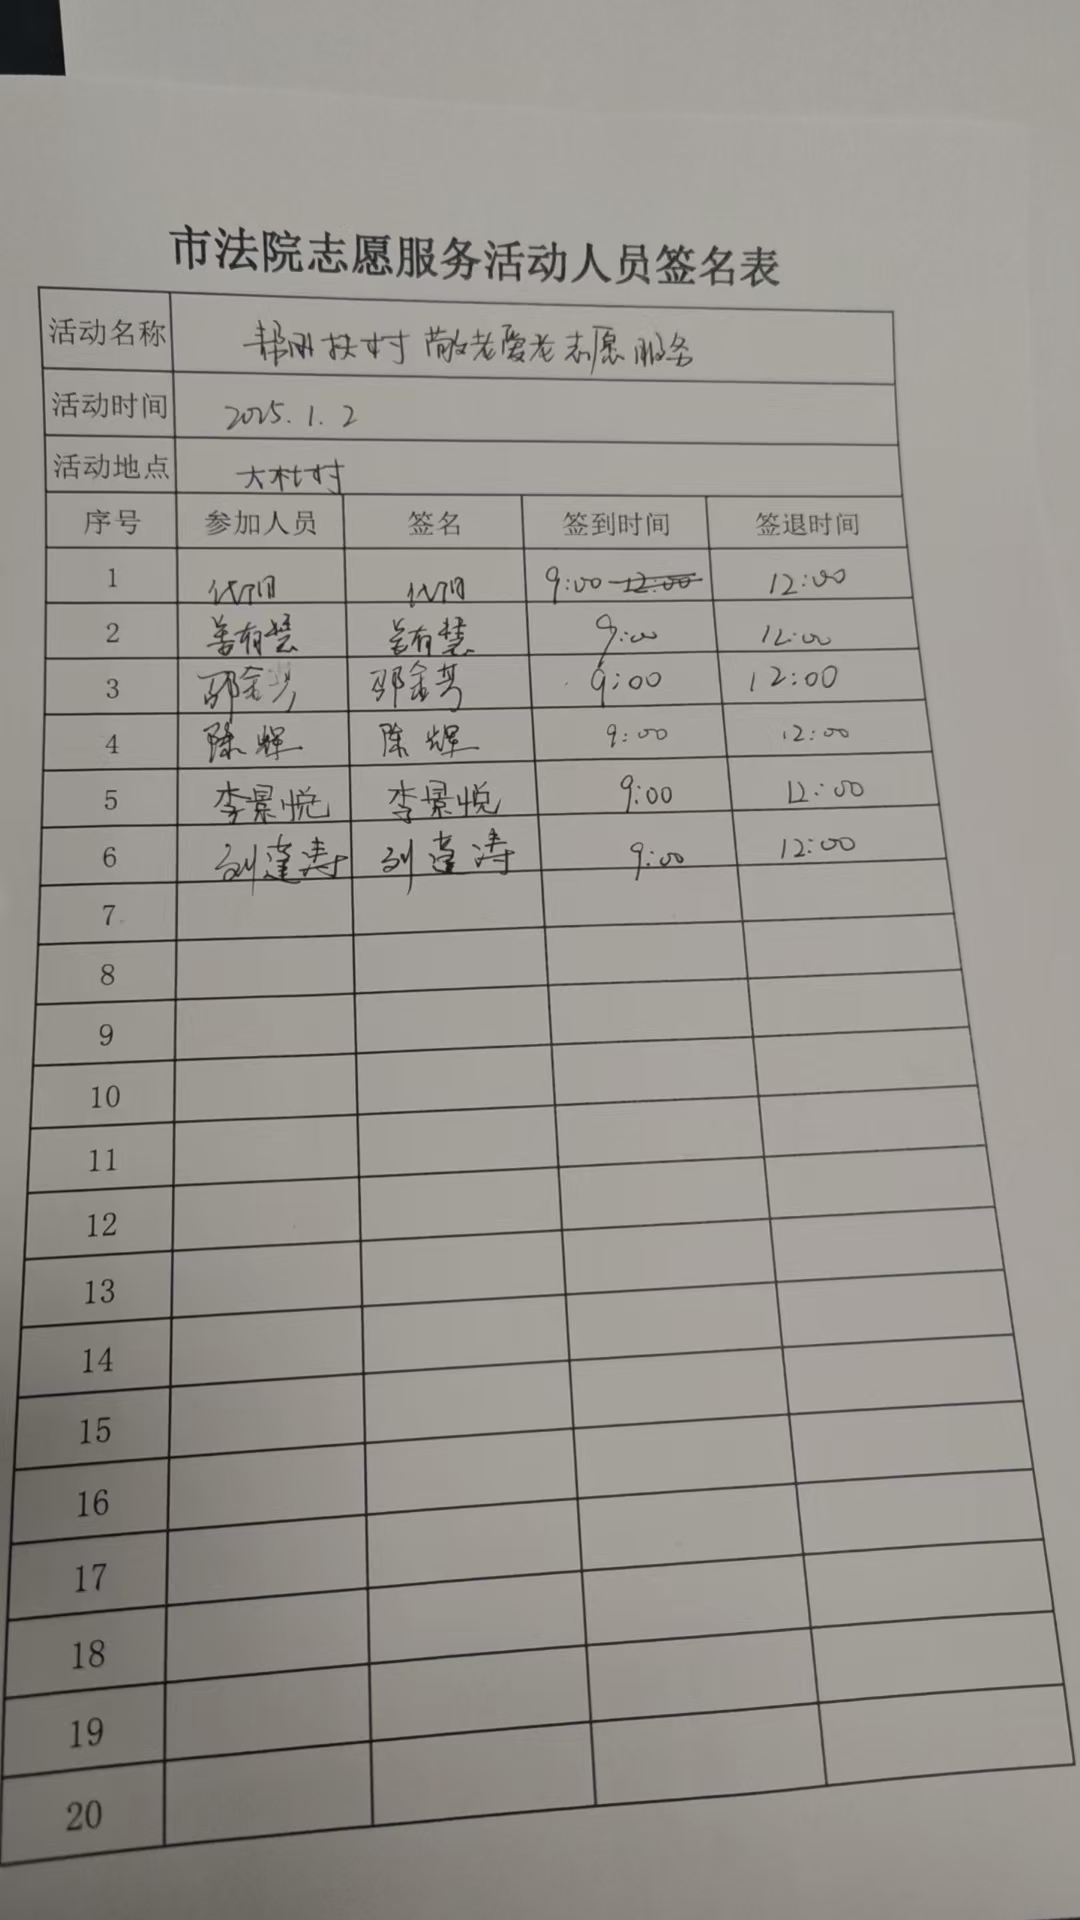 市法院志愿服务活动人员签名表
活动名称 帮刚扶村 敬老爱老志愿服务
活动时间 2025.1.2
活动地点 大杜村
序号 参加人员 签名 签到时间 签退时间
1 代阳 代阳 9:00 12:00 12:00
2 有慧 有慧 9:00 12:00
3 金 金 9:00 12:00
4 陈辉 陈辉 9:00 12:00
5 李景悦 李景悦 9:00 12:00
6 刘蓬涛 刘蓬涛 9:00 12:00
7
8
9
10
11
12
13
14
15
16
17
18
19
20